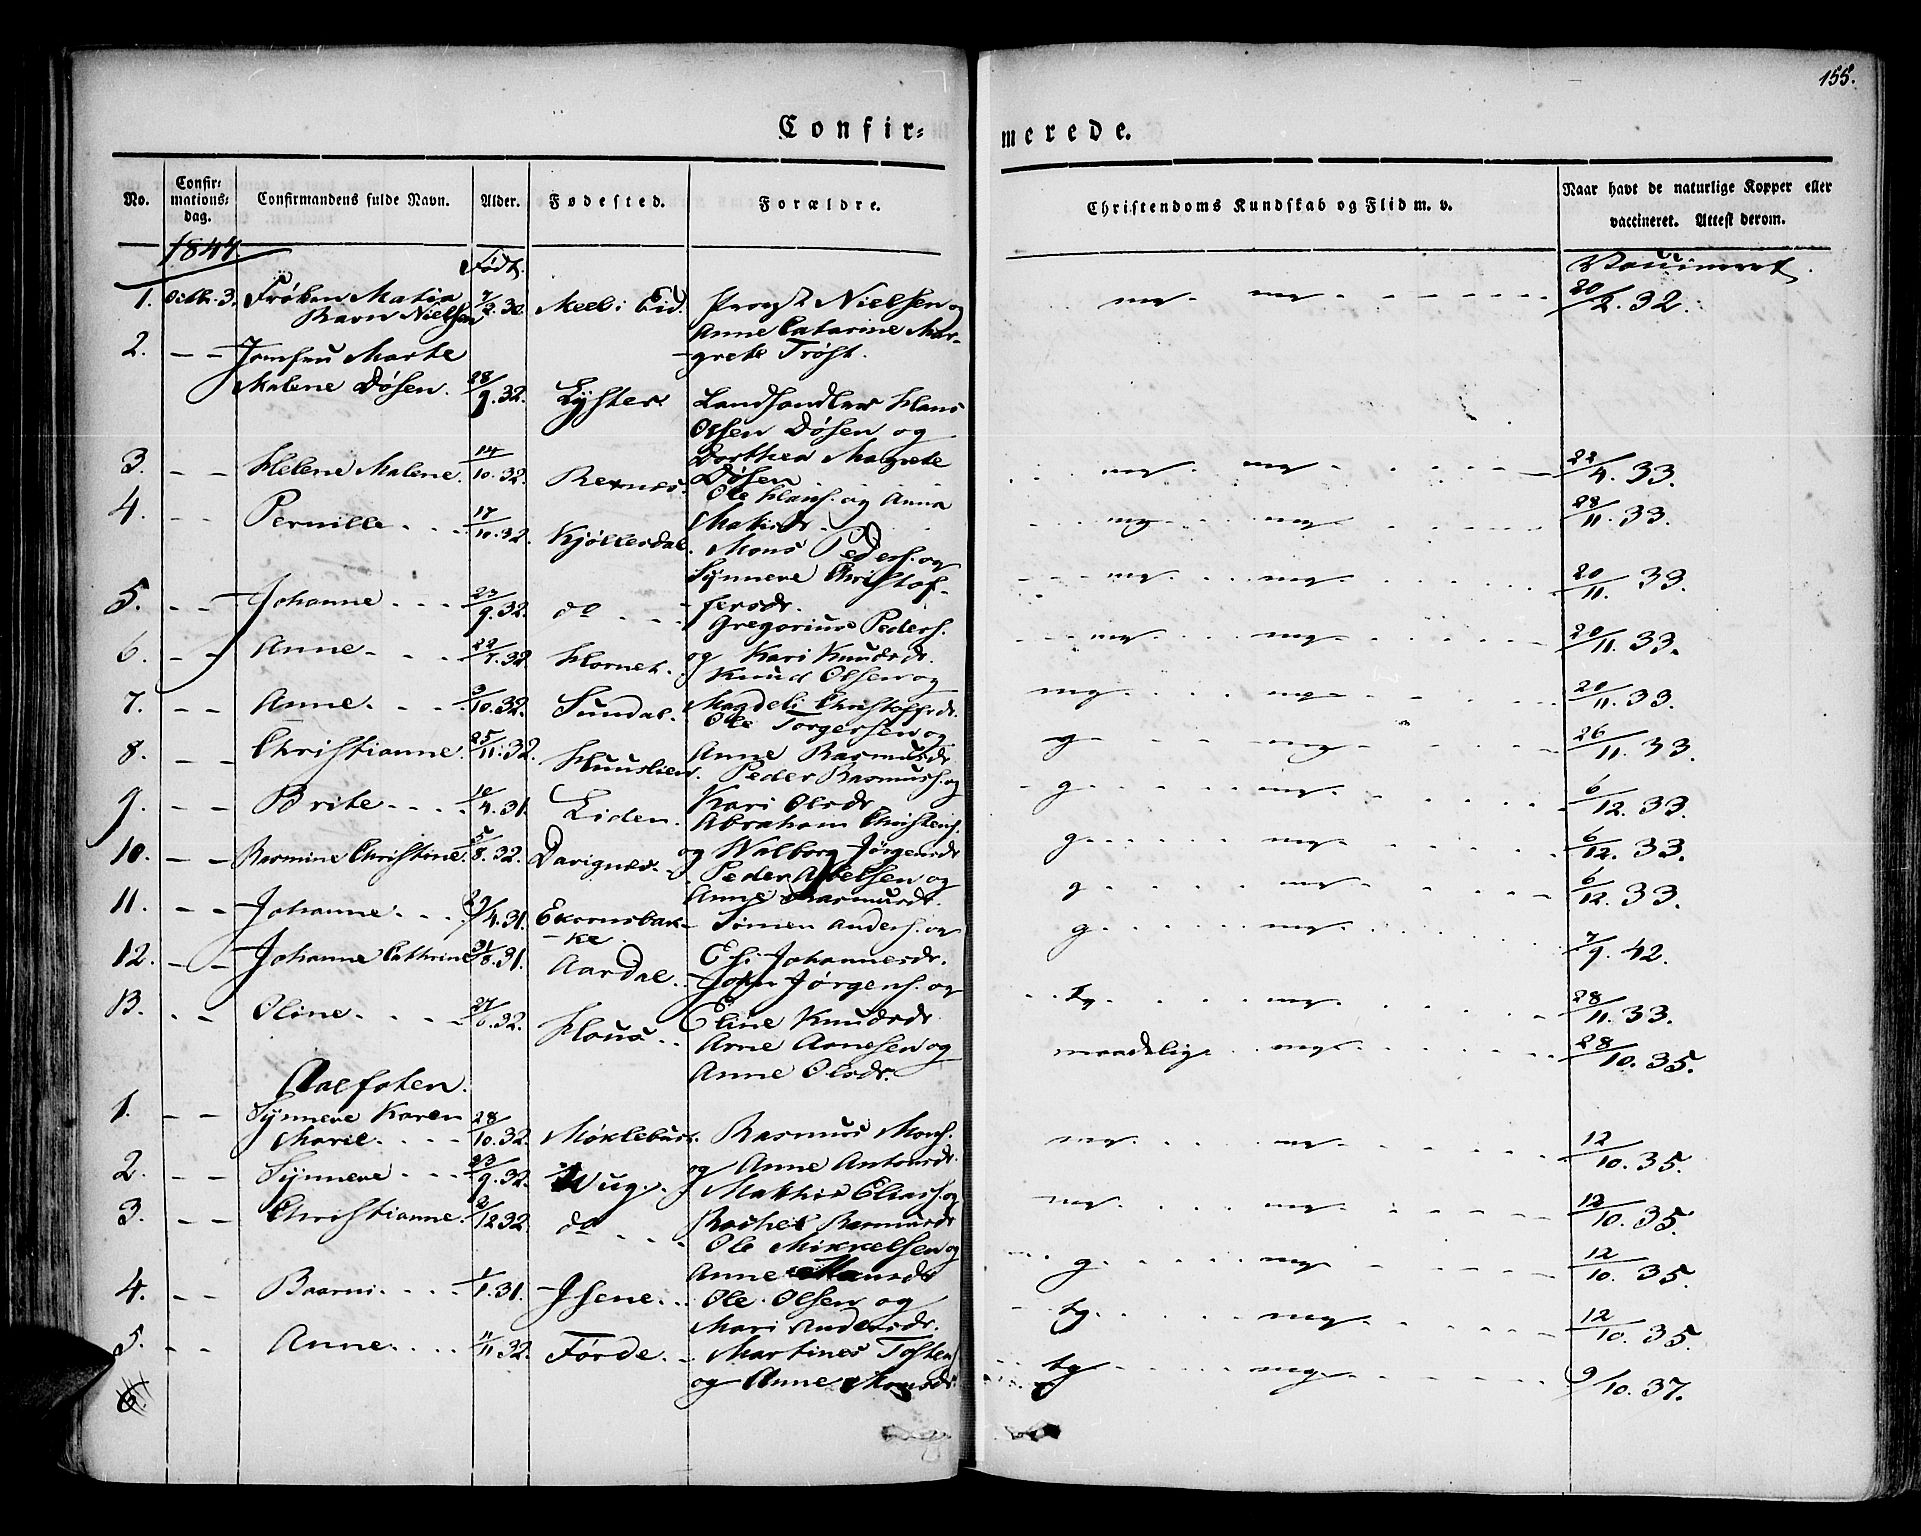 155.
Confir= merede.
No. Confir= mations= dag. Confirmandens fulde Navn. Alder. Fødested. Forældre. Christendoms Kundskab og Flid m. v. Naar havt de naturlige Kopper eller vaccineret. Attest derom.
1847.
Født. Vaccineret.
1. Octbr. 3. Frøken Maria 30 Meel i Eid. Provst Nielsen og mg. mg 20/2. 32.
Ravn Nielsen Anne Catarine Mar-
2. — — Jomfru Marte -grete Trøst.
Malene Døsen. 28/9. 32. Lyster Landhandler Hans
Olsen Døsen og
3. — — Helene Malene. 14/10. 32. Rernes. Dorthea Magrete mg mg 22/4. 33.
Døsen
4. — — Pernille 17/10. 32. Kjøllesdal. Ole Hans. og Anna mg mg 28/11. 33.
Matisdr.
Mons Peders. og
5. — — Johanne 27/9. 32. do Synneve Christof- mg mg 20/11. 33.
fersdr.
Gregorius Peders.
6. — — Anne 22/7. 32 Hornet. og Kari Knudsdr. mg mg 20/11. 33.
Knud Olsen og
7. — — Anne. 3/10. 32. Sundal. Magdeli Christoffrdr. mg mg 20/11. 33.
Ole Torgersen og
8. — — Christianne. 25/11. 32. Huuslien. Anne Rasmusdr. g mg 26/11. 33.
Peder Rasmuss. og
9. — — Brite 10/4. 31. Liden. Kari Olsdr. g mg 6/12. 33.
Abraham Christens.
10. — — Rasmine Christine. 5/8. 32. Davignes. og Walborg Jørgensdr. g mg 6/12. 33.
Peder Abelsen og
11. — — Johanne 29/4. 31. Ekornsbak- Anne Rasmusdr. g mg 6/12. 33.
-ke Simen Anders. og
12. — — Johanne Cathrine 31/8. 31. Aardal. Eli Johannesdr. g mg 7/9. 42.
John Jørgens. og
13. — — Oline 27/6. 32. Hous Eline Knudsdr. tg mg 28/11. 33.
Arne Arnesen og maadelig mg 28/10. 35.
Anne Olsdr.
Aalfoten.
1. — — Synneve Karen
Marie 28/10. 32. Møklebust. Rasmus Mons. mg mg 12/10. 35.
2. — — Synneve 23/9. 32. Wug. og Anne Antonsdr.
Mathis Elias. og mg mg 12/10. 35.
3. — — Christianne. 2/12 32. do Rachel Rasmusdr.
Ole Mikkelsen og g mg 12/10. 35.
Anne Hansdr.
4. — — Baarni 1/1. 31. Isene. Ole Olsen og tg mg 12/10. 35.
Mari Andersdr.
5. — — Anne. 11/11 32. Førde. Martines Tosten tg mg 9/10. 37.
6. og Anne Monsdr.